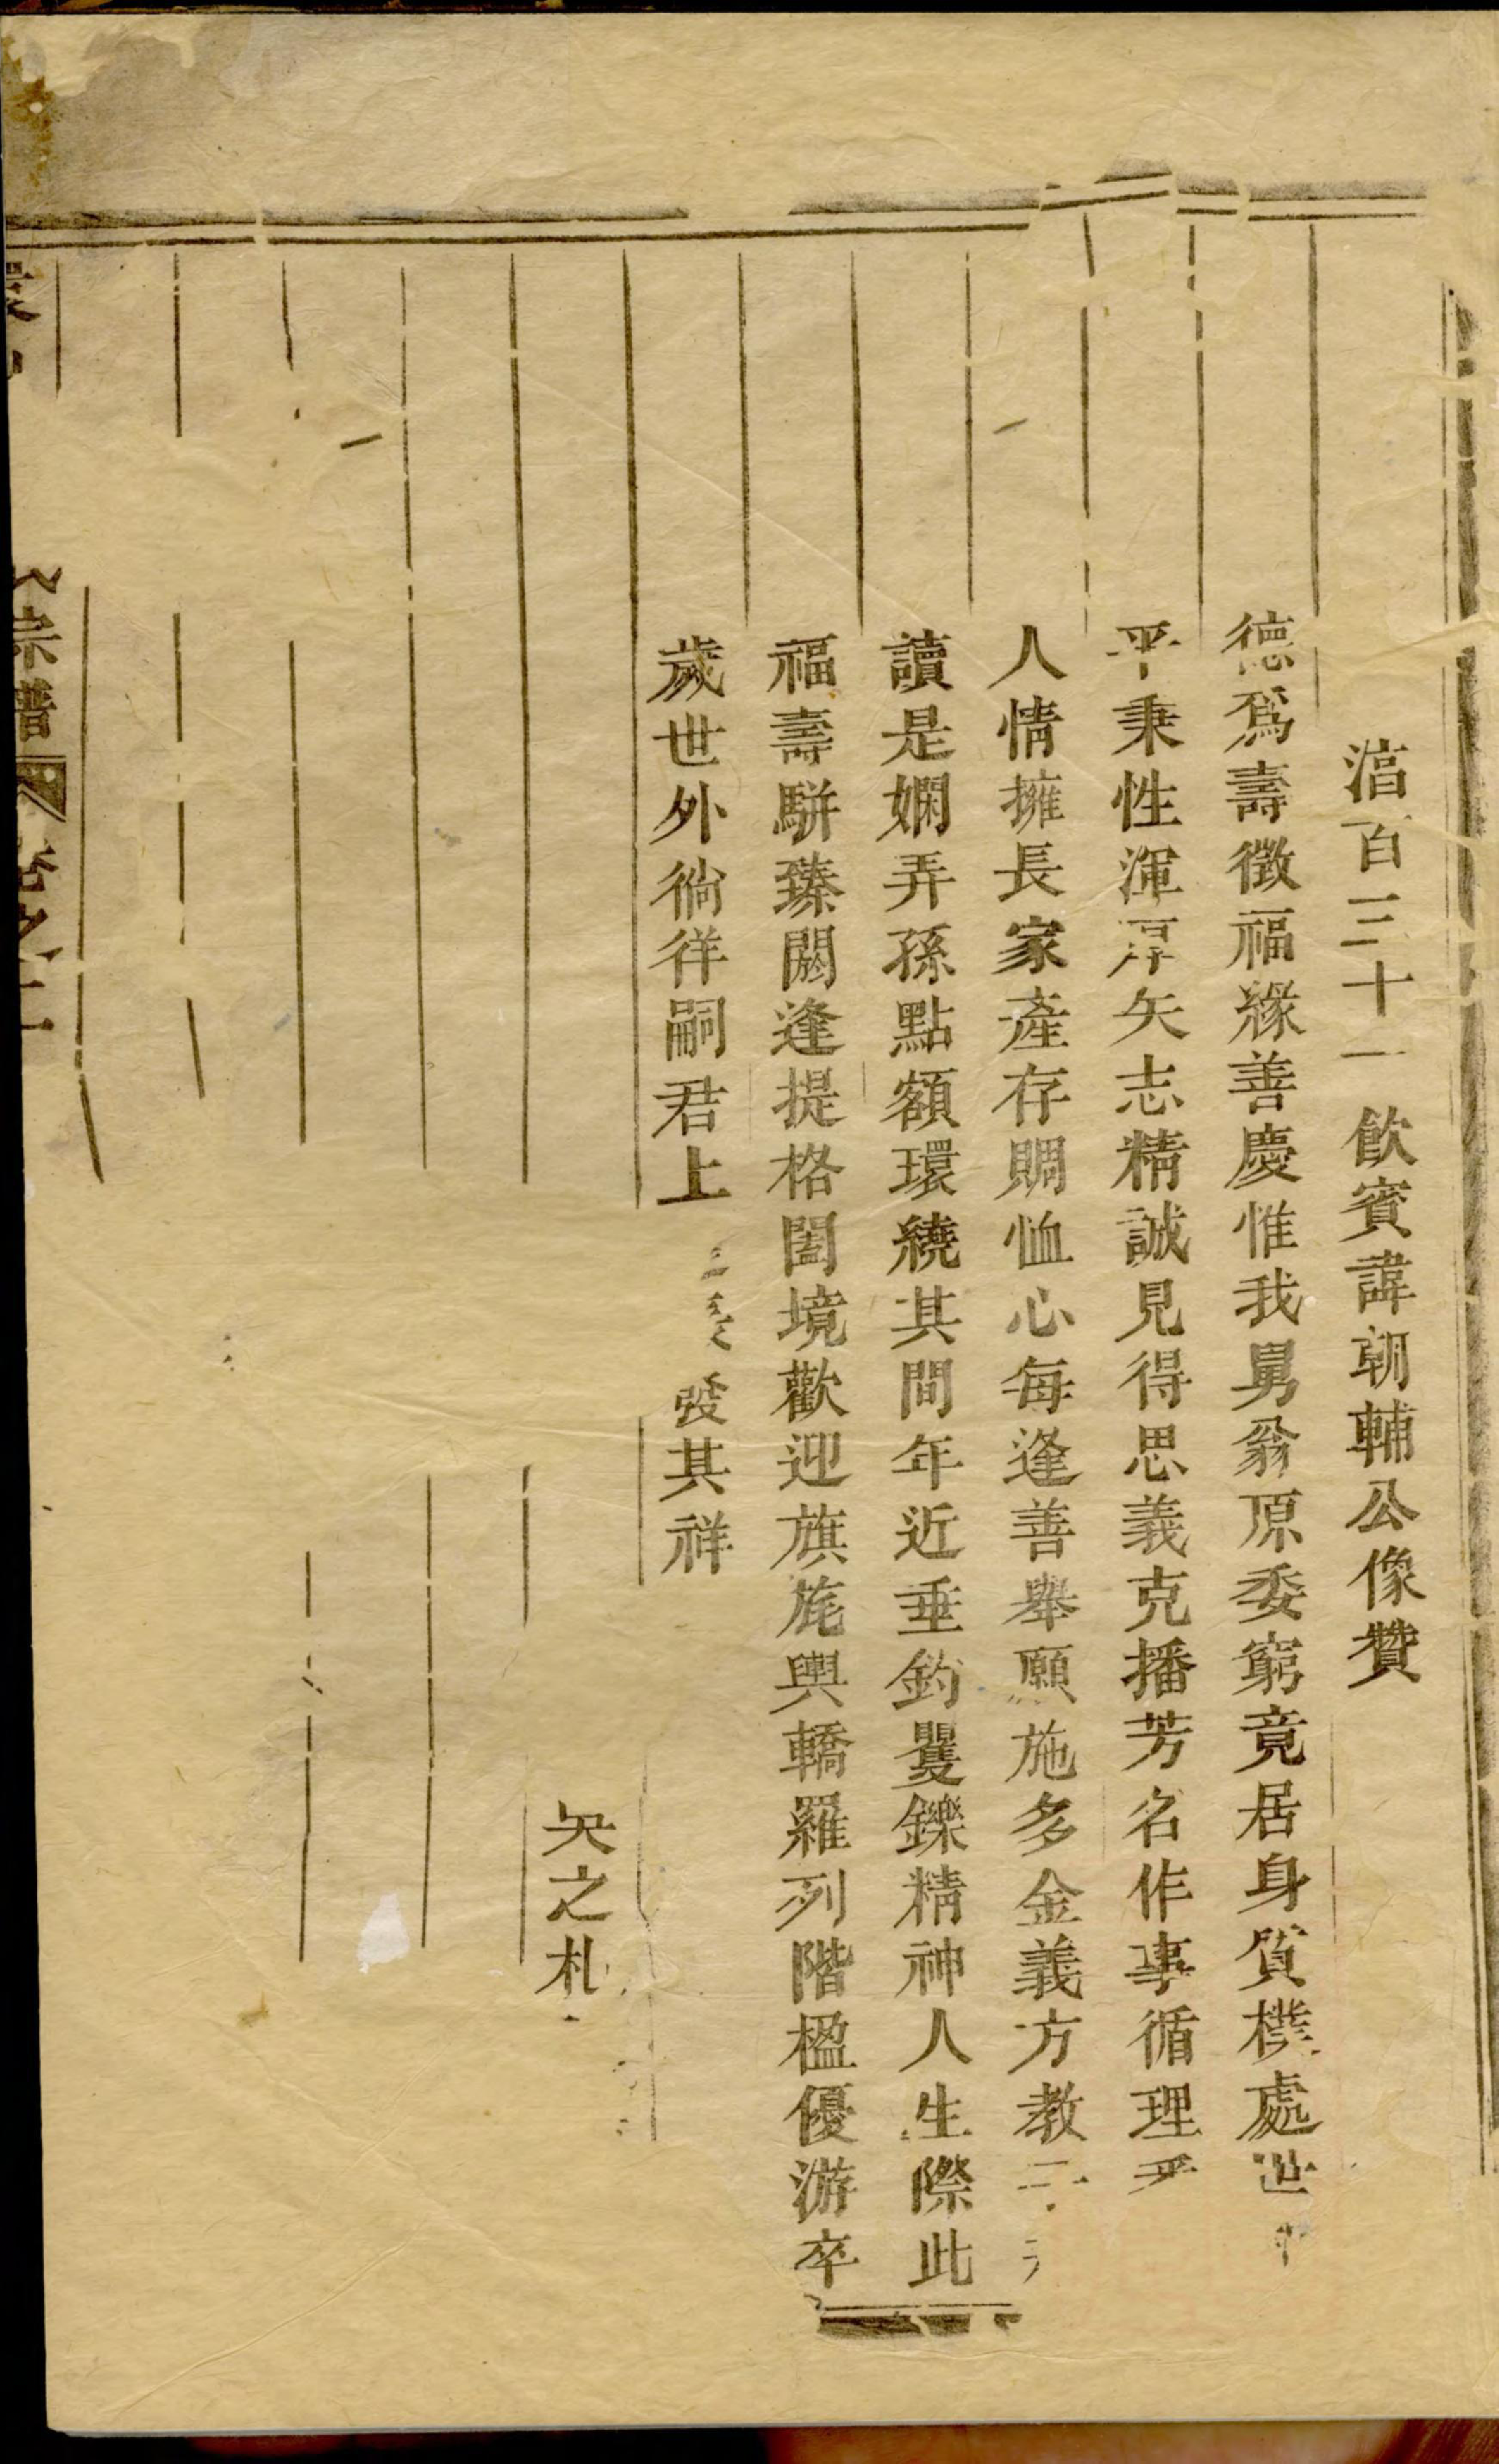 湻百三十一飲賓諱朝輔公像贊
德爲壽徵福緣善慶惟我舅翁原委窮竟居身質樸處世
平秉性渾厚矢志精誠見得思義克播芳名作事循理
人情擁長家產存賙恤心每逢善舉願施多金義方教子
讀是嫻弄孫點額環繞其間年近垂釣矍鑠精神人生際此
福壽駢臻閼逢提格闔境歡迎旗旄輿轎羅列階楹優游卒
歲世外徜徉嗣君上 發其祥
之札
宗譜